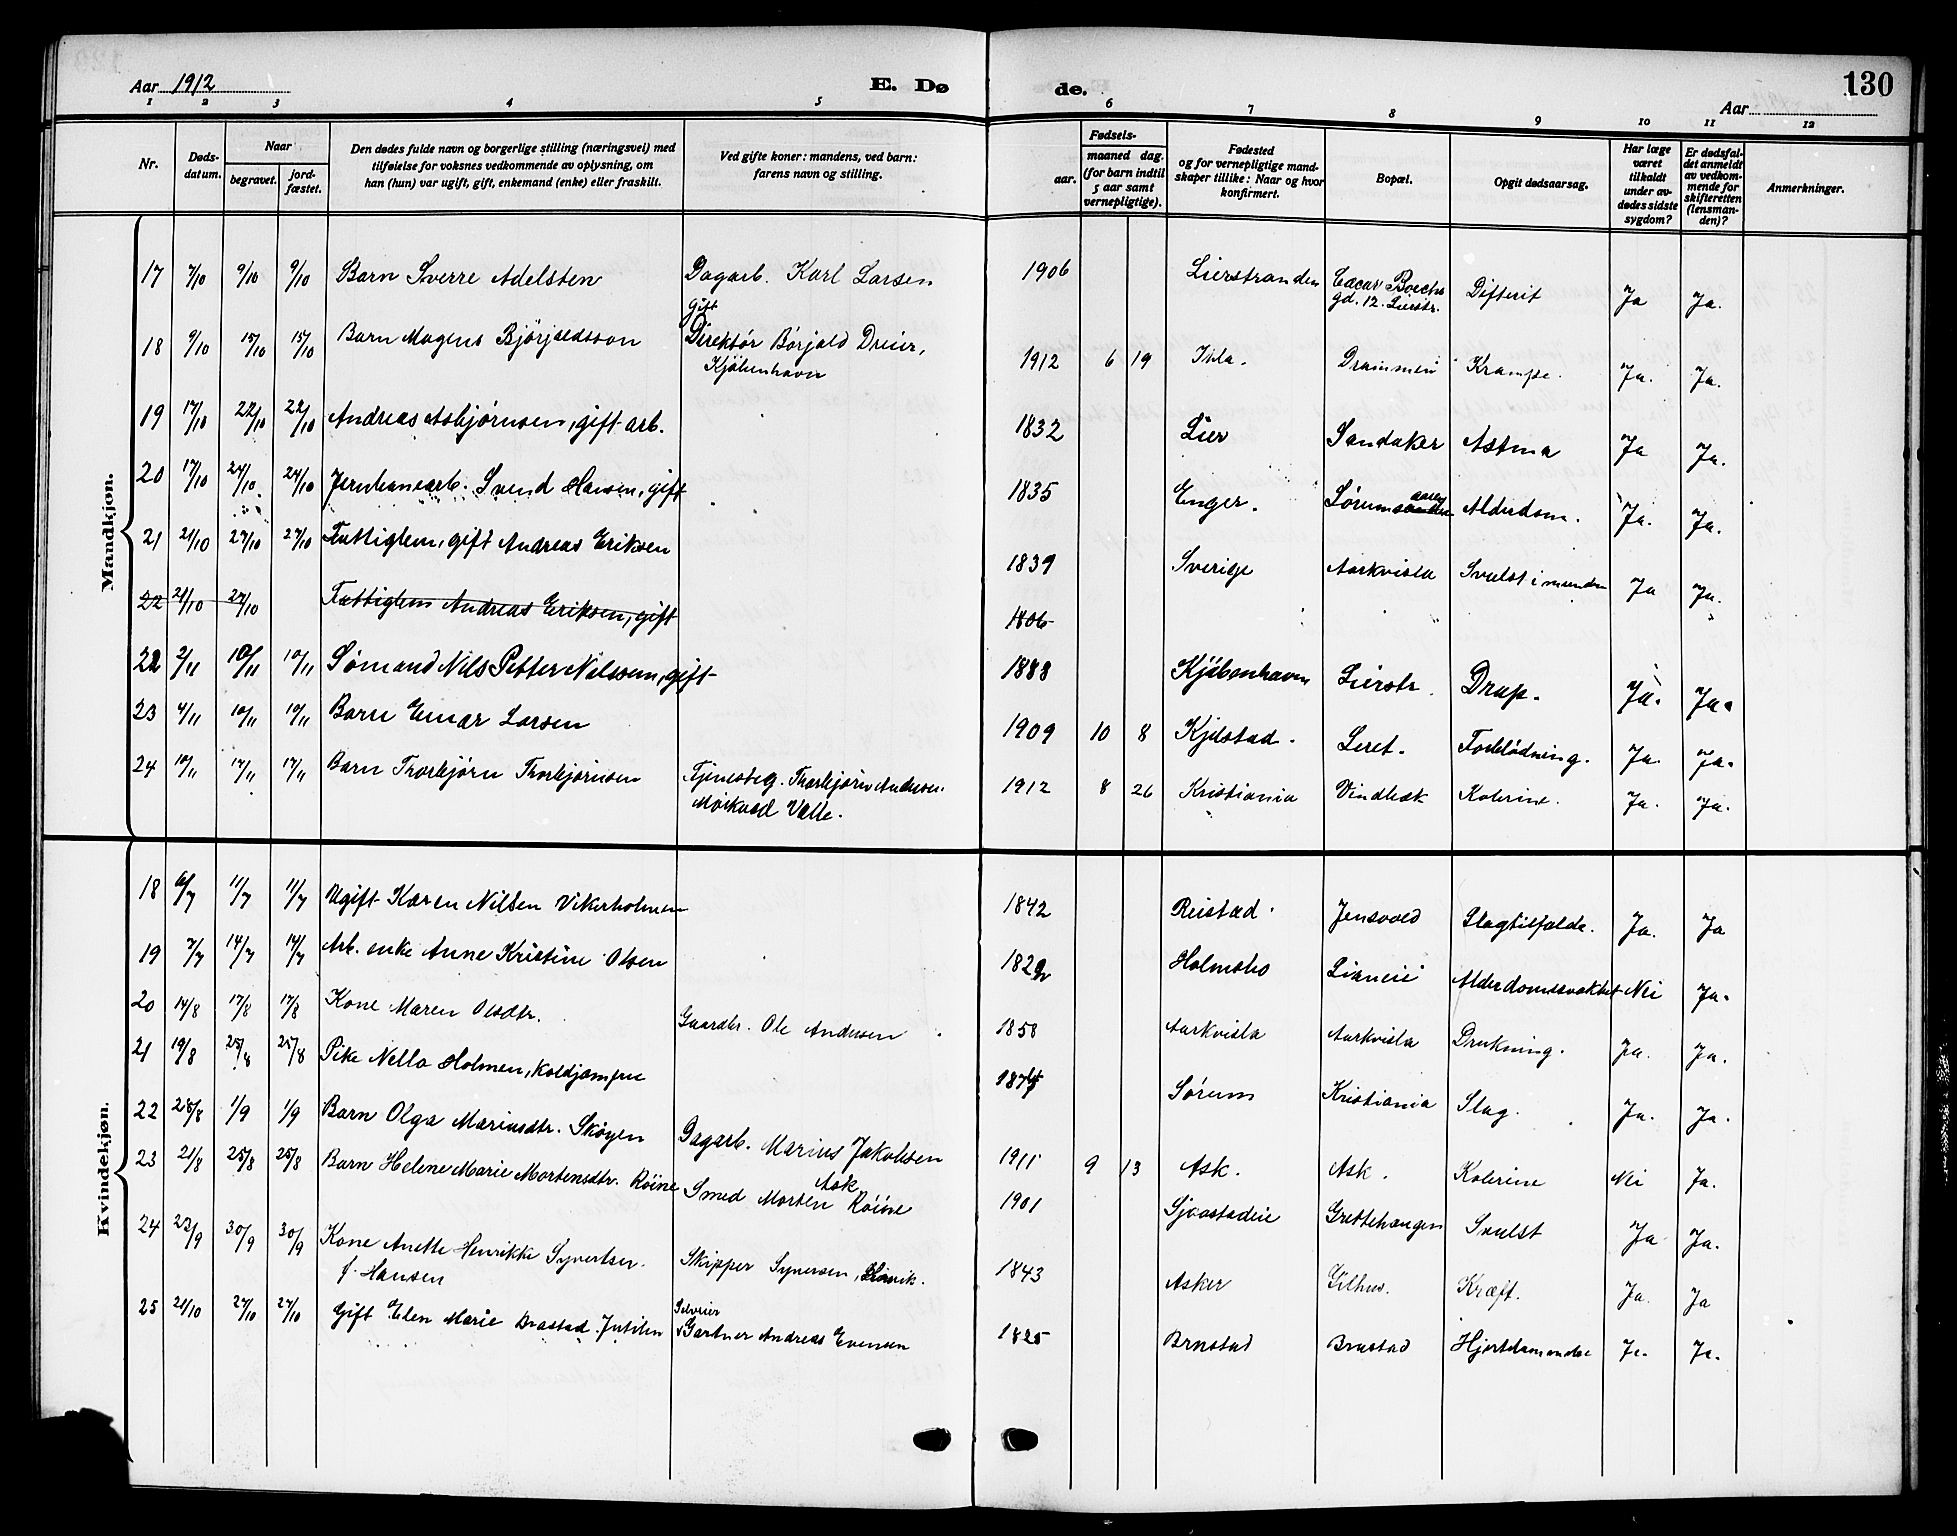 Aar 1912
E. Dø
de.
Aar
130
1 2 3 4 5 6 7 8 9 10 11 12
Nr.
Døds-
datum.
Naar
begravet.
jord-
fæstet.
Den dødes fulde navn og borgerlige stilling (næringsvei) med
tilføielse for voksnes vedkommende av oplysning, om
han (hun) var ugift, gift, enkemand (enke) eller fraskilt.
Ved gifte koner: mandens, ved barn:
farens navn og stilling.
Fødsels-
aar.
maaned dag.
(for barn indtil
5 aar samt
vernepligtige).
Fødested
og for vernepligtige mand-
skaper tillike: Naar og hvor
konfirmert.
Bopæl.
Opgit dødsaarsag.
Har læge
været
tilkaldt
under av-
dødes sidste
sygdom?
Er dødsfal-
det anmeldt
av vedkom-
mende for
skifteretten
(lensman-
den)?
Anmerkninger.
Mandkjøn.
17 7/10 9/10 9/10 Barn Sverre Adelsten Dagarb. Karl Larsen 1906 Lierstranden gd. 12. Lierstr. Difterit Ja Ja.
gift
18 9/10 15/10 15/10 Barn Mogens Direktør Dreier, 1912 6 19 Drammen Krampe. Ja. Ja.
Kjøbenhavn
19 17/10 22/10 22/10 Andreas Asbjørnsen, gift arb. 1832 Lier Sandaker Astma Ja Ja.
20 17/10 24/10 24/10 Jernbanearb. Svend Hansen, gift 1835 Enger. Alderdom. Ja. Ja.
21 21/10 27/10 27/10 Fattiglem, gift Andreas Eriksen 1839 Sverige Aarkvisla Svulst i munden Ja Ja.
22 21/10 27/10 Fattiglem Andreas Eriksen, gift 1806
22 2/11 10/11 10/11 Sømand Nils Petter Nilssen, gift 1888 Kjøbenhavn Lierstr. Drap. Ja. Ja.
23 4/11 10/11 10/11 Barn Einar Larsen 1909 10 8 Kjelstad. Leret. Forblødning. Ja. Ja.
24 10/11 17/11 17/11 Barn Thorbjørn Thorbjørnsen Tjenesteg. Thorbjørn Andersen. 1912 8 26 Kristiania Vindbæk Kolerine. Ja. Ja.
Mørkved Valle.
Kvindekjøn.
18 6/7 11/7 11/7 Ugift Karen Nilsen Vikerholmen 1842 Reistad. Jensvold Slagtilfælde. Ja. Ja
19 7/7 14/7 14/7 Arb. enke Anne Kristine Olsen Holmsbo Lianeie Alderdomssvakhet Nei Ja.
20 14/8 17/8 17/8 Kone Maren Olsdtr. Gaardbr. Ole Andersen 1858 Aarkvisla Aarkvisla Drukning. Ja. Ja.
21 19/8 25/8 25/8 Pike Nella Holmen, Sørum Kristiania Slag. Ja. Ja.
22 28/8 1/9 1/9 Barn Olga Mariusdtr. Skøyen Dagarb. Marius Jakobsen 1911 9 13 Ask. Ask. Kolerine Nei Ja.
Ask
23 21/8 25/8 25/8 Barn Helene Marie Mortensdtr. Røine Smed Morten Røine 1901 Sjaastadeie Grettehaugen Svulst Ja Ja.
24 23/9 30/9 30/9 Kone Anette Henrikke Syvertsen. Skipper Syversen, 1843 Asker Gilhus. Kræft. Ja. Ja
f. Hansen
25 21/10 27/10 27/10 Gift Elen Marie Brastad Gartner Andreas Evensen 1825 Brastad Brastad Ja. Ja.
Selveier